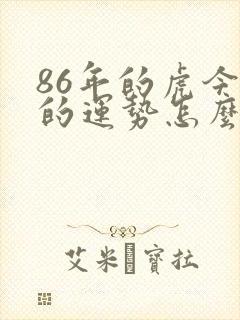 86年的虎今
的運勢怎麼
艾米寶拉